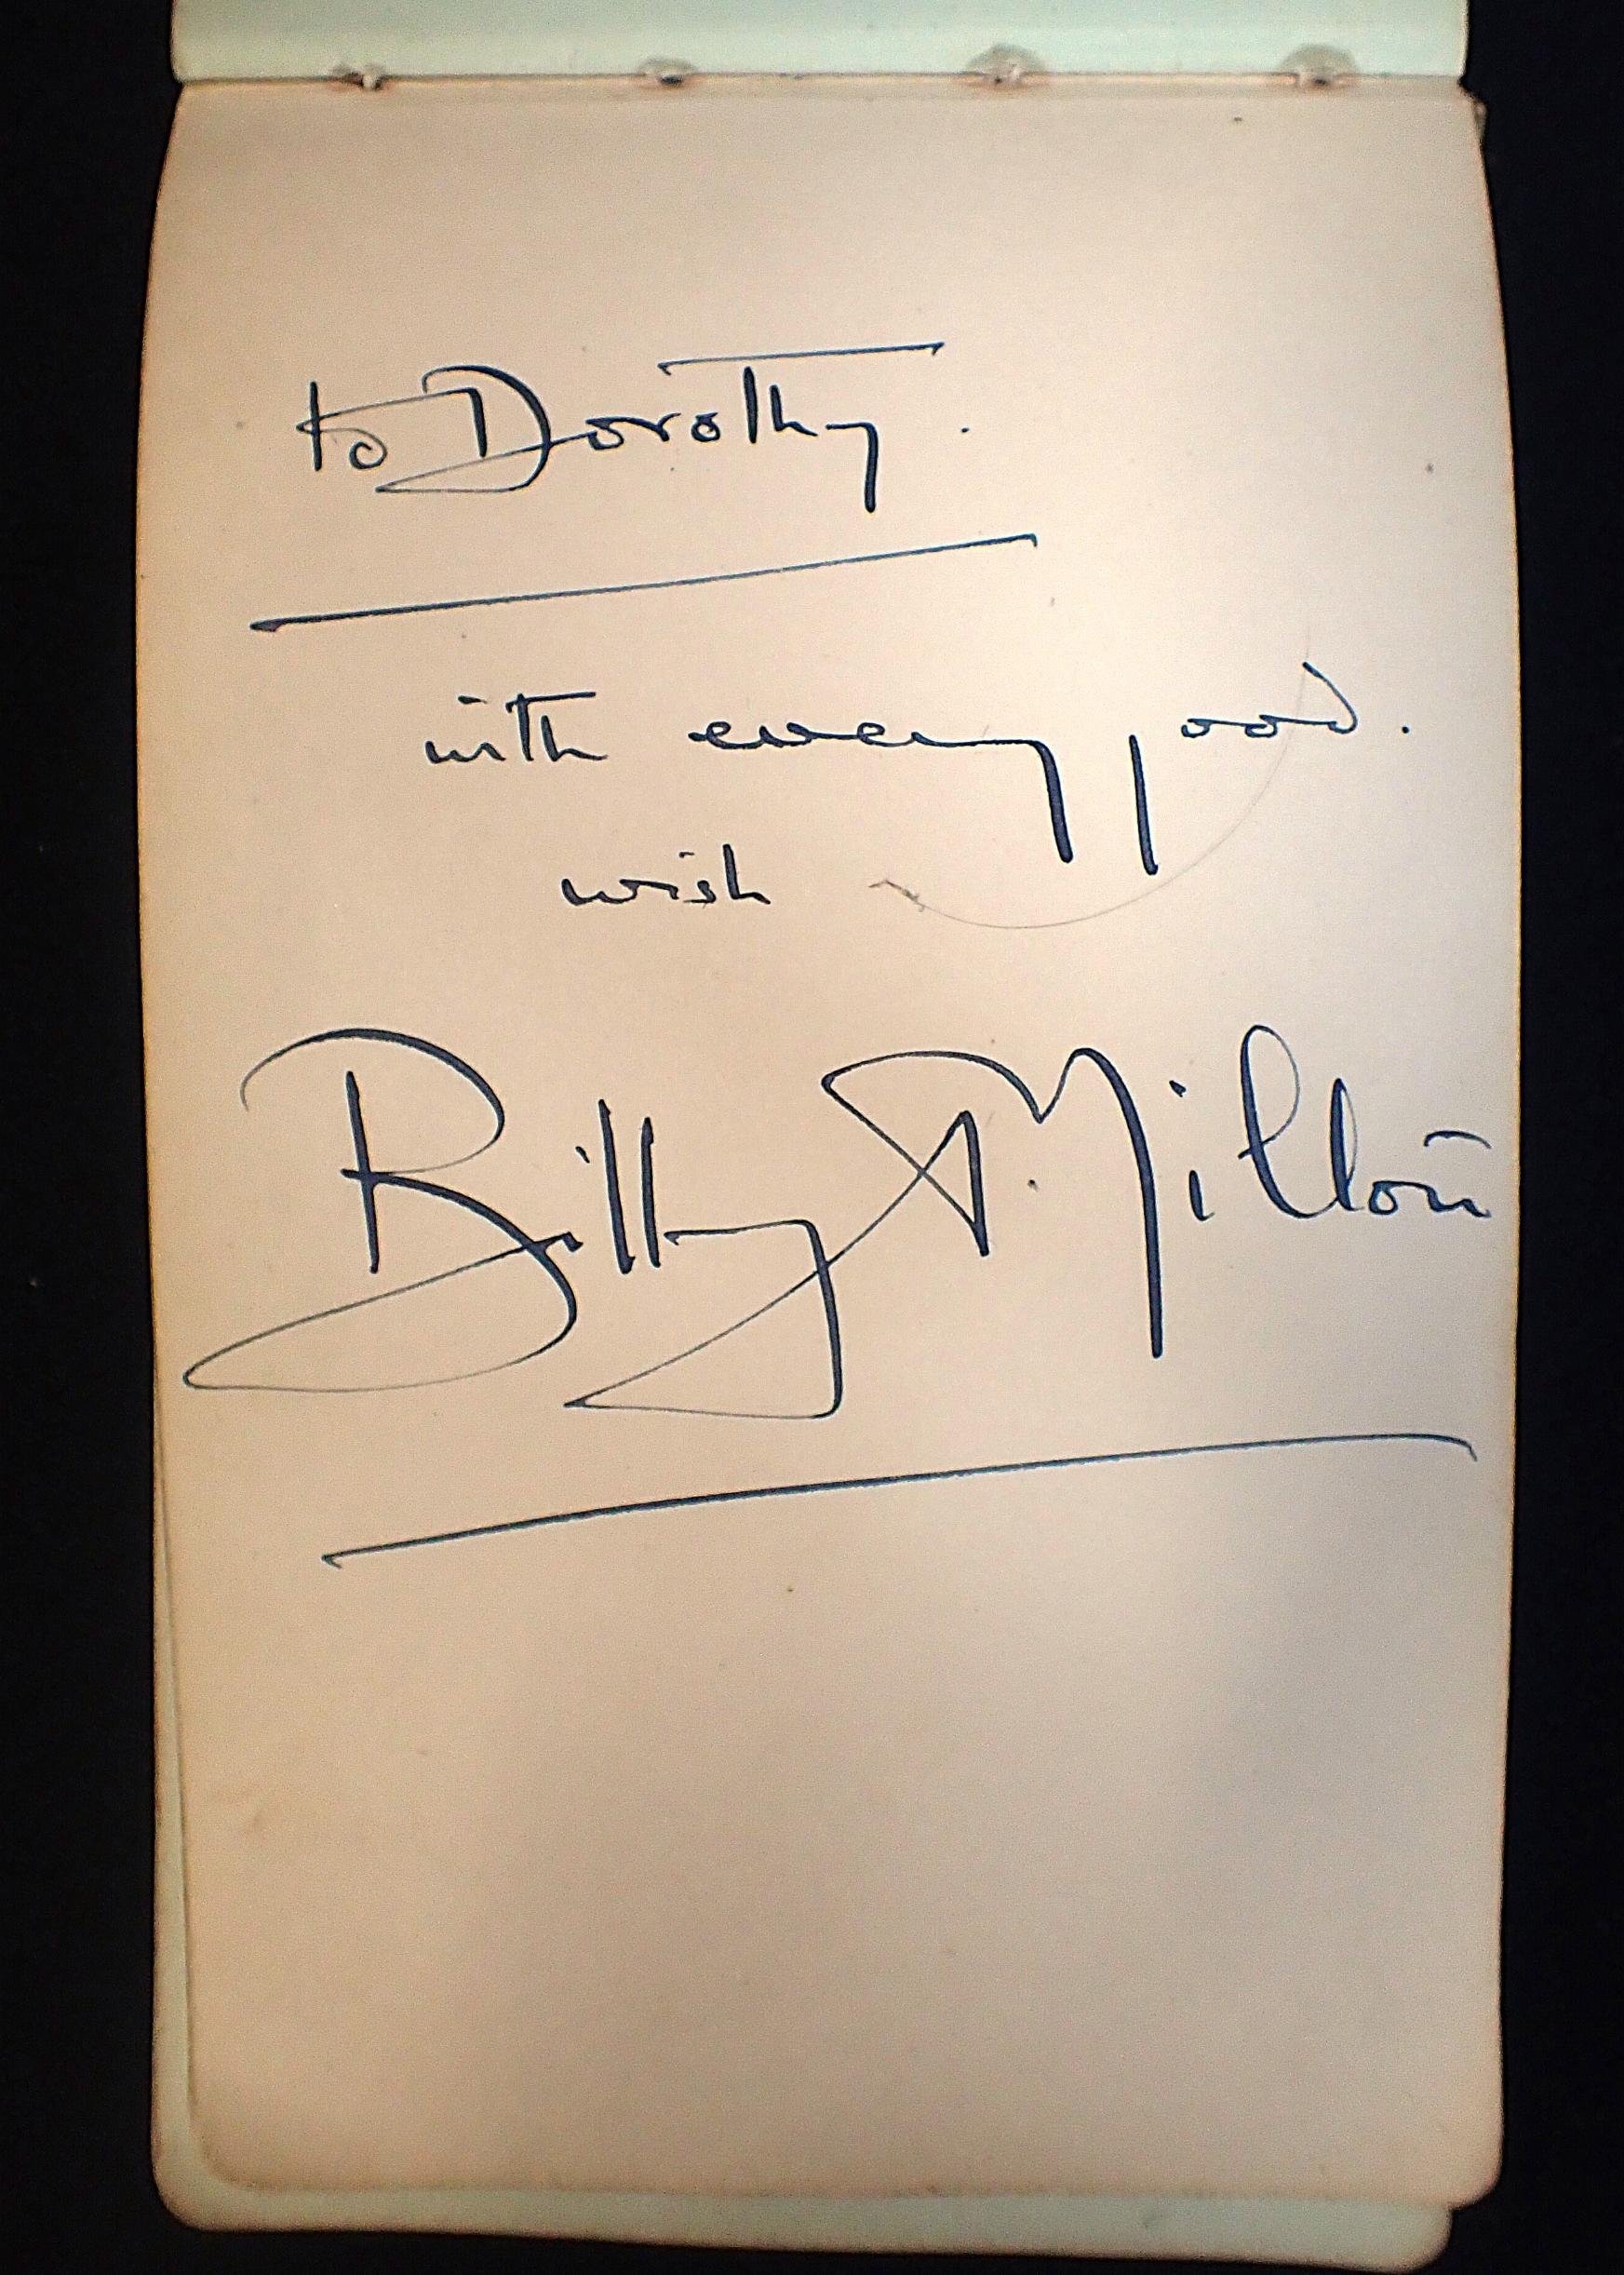 to Dorothy.
with every good.
wish
Billy Milton